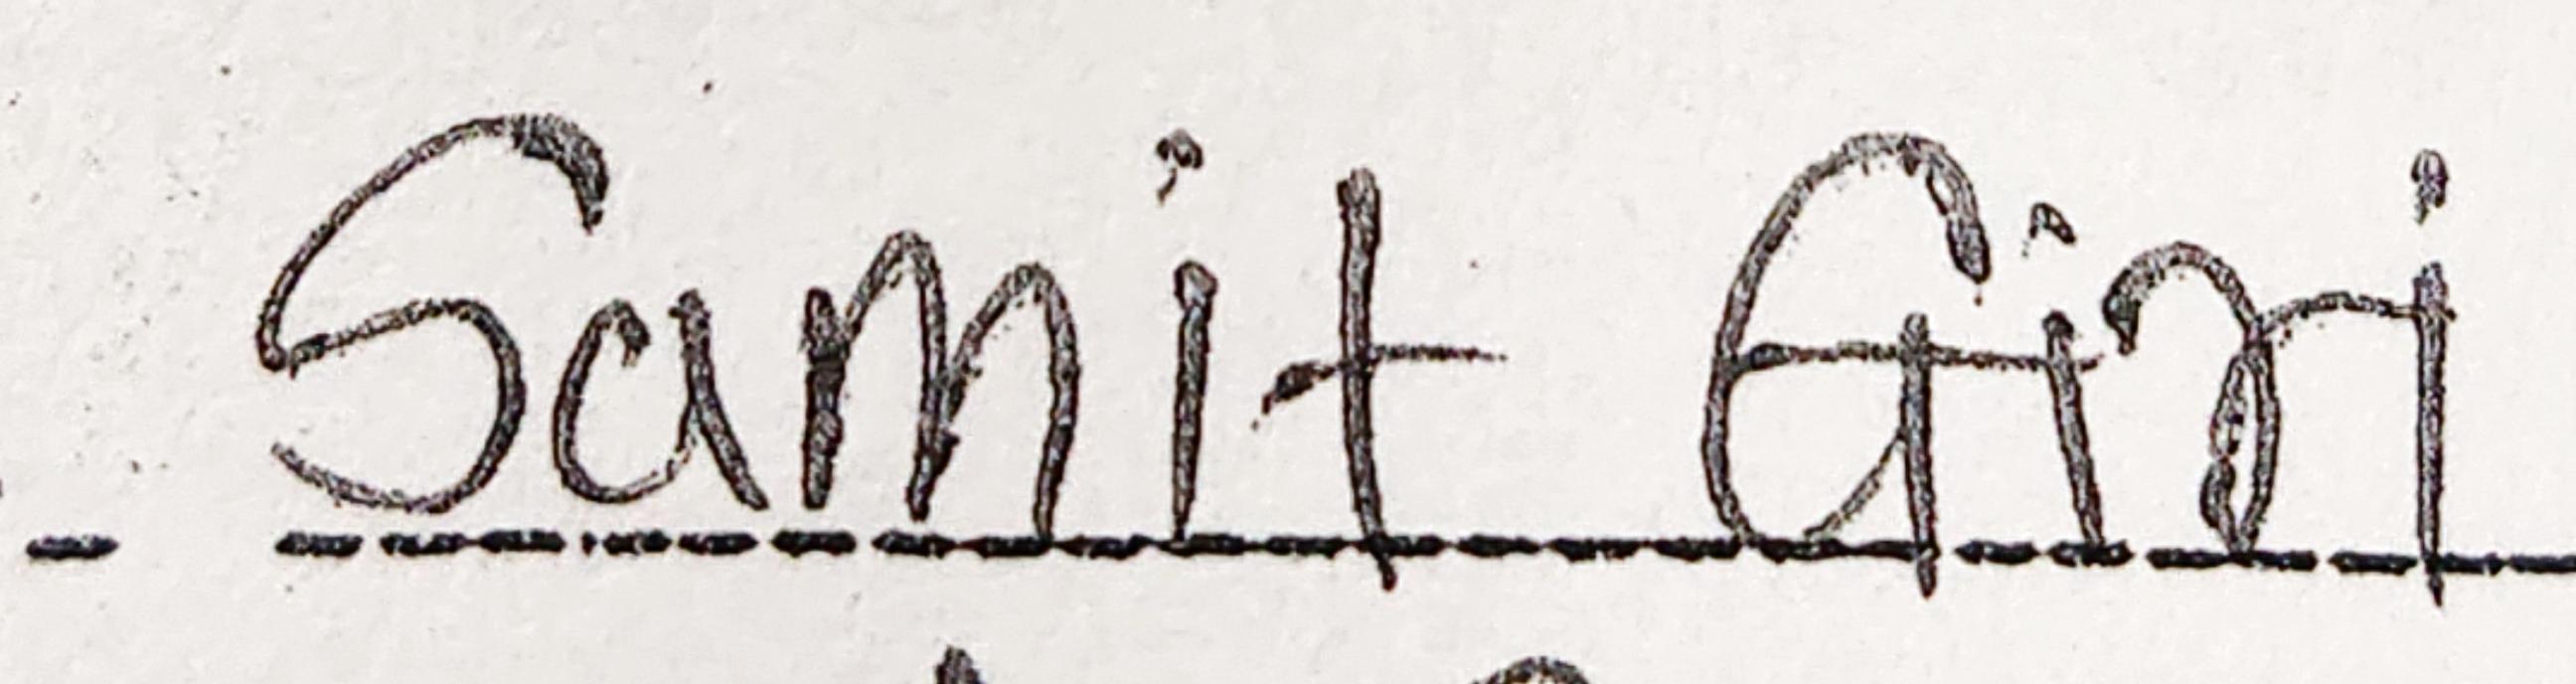 Samit Giri